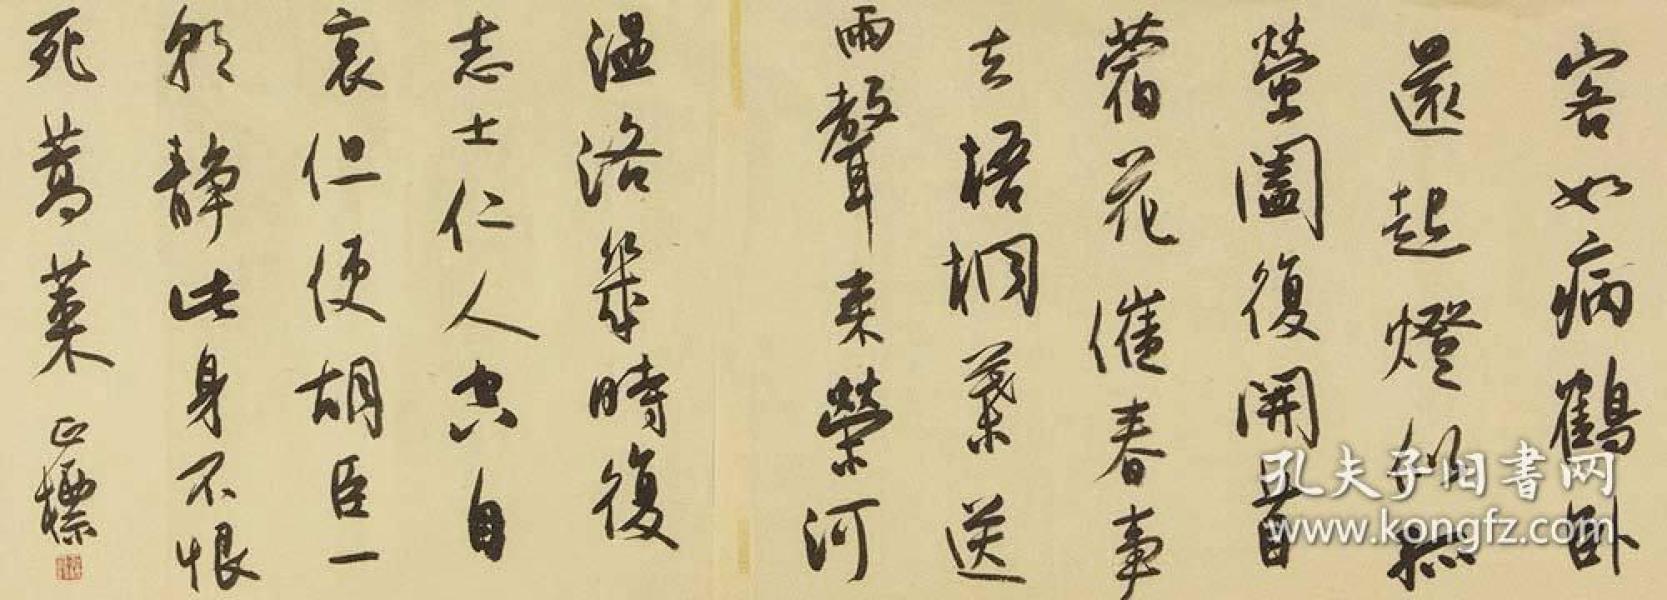 客如病鶴臥
還起燈似孤
螢闔復開昔
菊花催春事
去梧桐葉送
雨聲來榮河
溫洛幾時復
志士仁人空自
哀但使胡臣一
朝靜此身不恨
死蒿萊 正標
孔夫子旧書网
www.kongfz.com